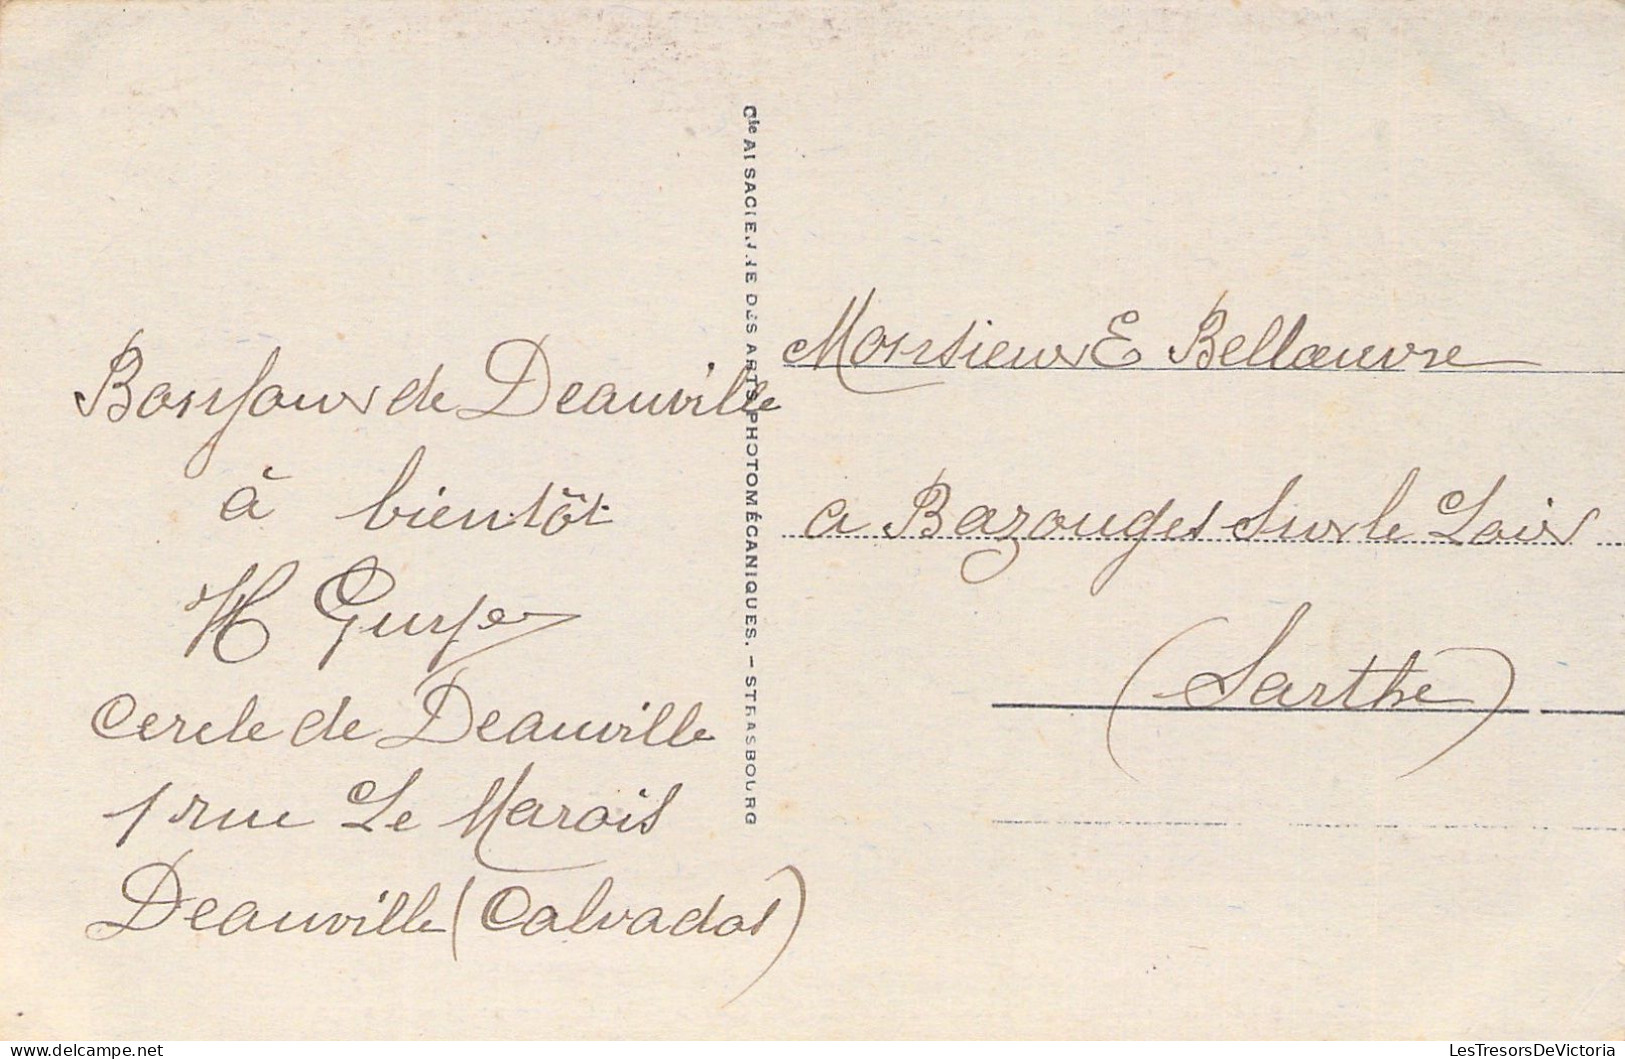 Bonjour de Deauville
à bientôt
H Guye
Cercle de Deauville
1 rue Le Marois
Deauville (Calvados)
Cie ALSACIENNE DES ARTS PHOTOMÉCANIQUES. – STRASBOURG
Monsieur E Bellœuvre
a Bazouges Sur le Loir
(Sarthe)
LesTresorsDeVictoria
delcampe.net